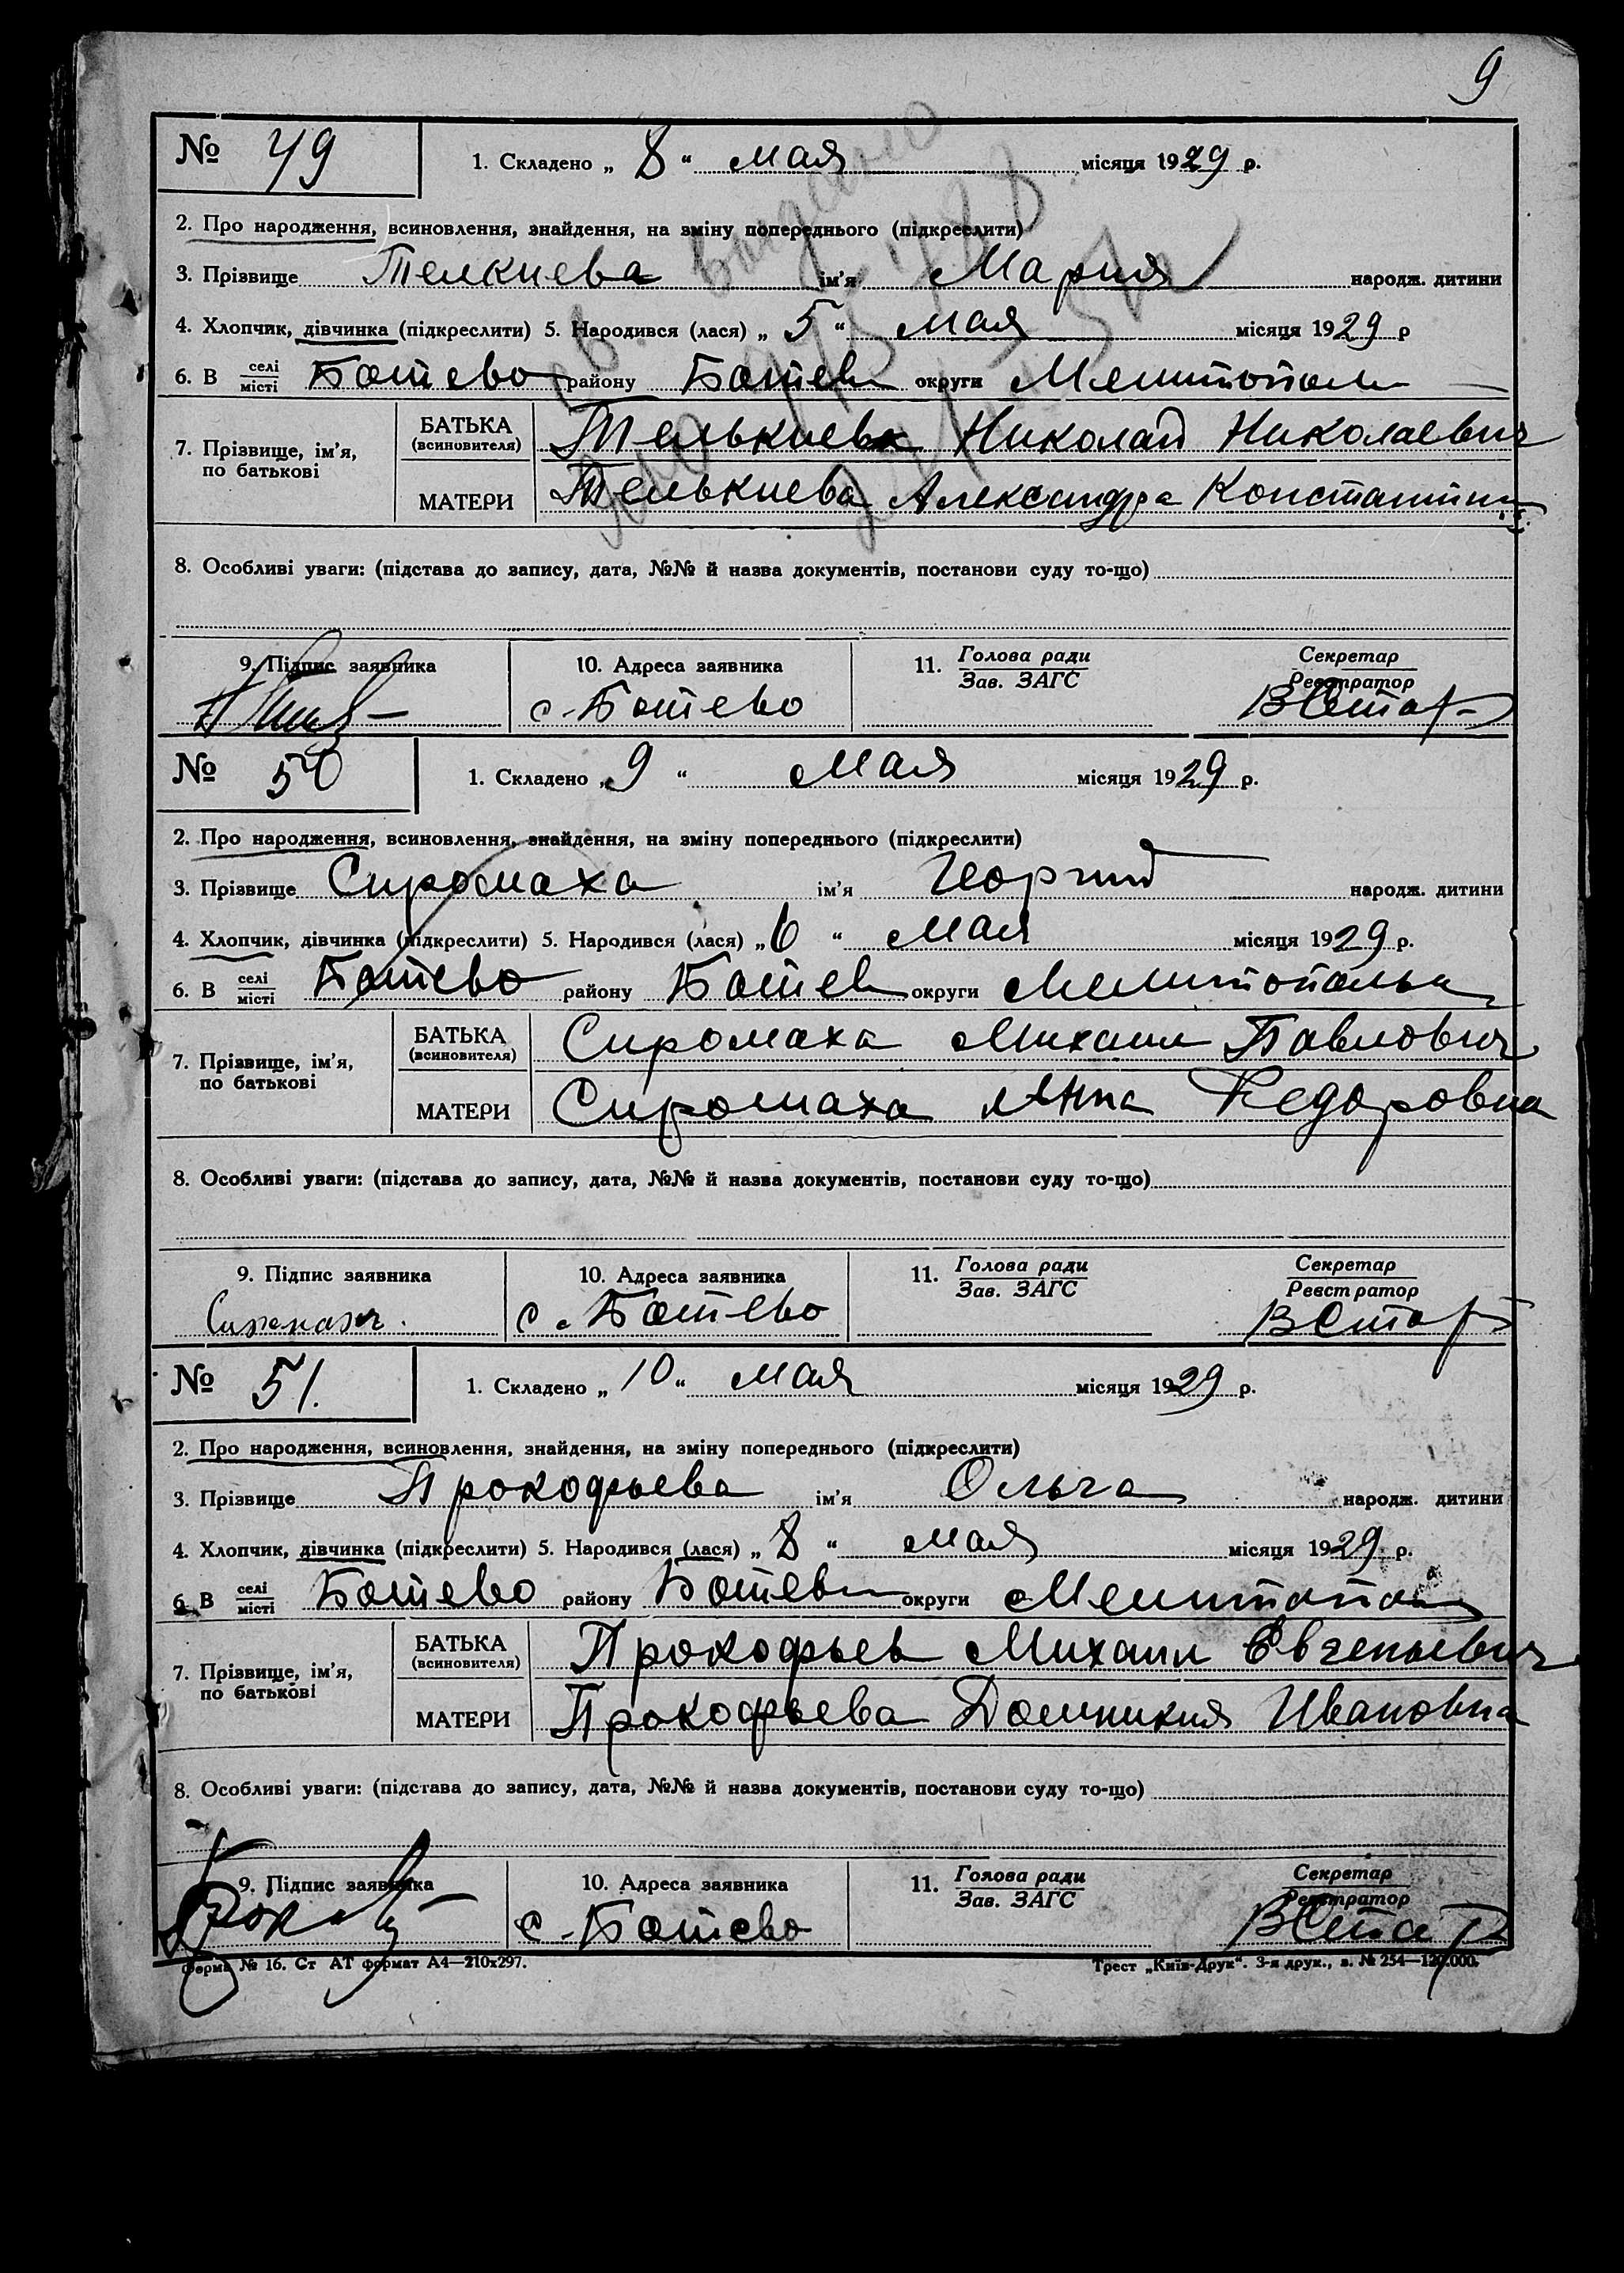 9
№ 49 1. Складено „ 8 “ мая місяця 1929 р.
2. Про народження, всиновлення, знайдення, на зміну попереднього (підкреслити)
3. Прізвище Телкиева ім'я Мария народж. дитини
4. Хлопчик, дівчинка (підкреслити) 5. Народився (лася) „ 5 “ мая місяця 1929 р
6. В селі місті Ботево району Ботев округи Мелитополь
7. Прізвище, ім'я, по батькові
БАТЬКА (всиновителя) Телькиев Николай Николаевич
МАТЕРИ Телькиева Александра Константин
8. Особливі уваги: (підстава до запису, дата, №№ й назва документів, постанови суду то-що)
9. Підпис заявника 10. Адреса заявника 11. Голова ради Зав. ЗАГС Секретар Реєстратор
с. Ботево
выдано
№ 50 1. Складено „ 9 “ мая місяця 1929 р.
2. Про народження, всиновлення, знайдення, на зміну попереднього (підкреслити)
3. Прізвище Сиромаха ім'я Иоргий народж. дитини
4. Хлопчик, дівчинка (підкреслити) 5. Народився (лася) „ 6 “ мая місяця 1929 р.
6. В селі місті Ботево району Ботев округи Мелитопольк
7. Прізвище, ім'я, по батькові
БАТЬКА (всиновителя) Сиромаха Михаил Павлович
МАТЕРИ Сиромаха Анна Федоровна
8. Особливі уваги: (підстава до запису, дата, №№ й назва документів, постанови суду то-що)
9. Підпис заявника 10. Адреса заявника 11. Голова ради Зав. ЗАГС Секретар Реєстратор
с. Ботево
№ 51. 1. Складено „ 10 “ мая місяця 1929 р.
2. Про народження, всиновлення, знайдення, на зміну попереднього (підкреслити)
3. Прізвище Прокофьева ім'я Ольга народж. дитини
4. Хлопчик, дівчинка (підкреслити) 5. Народився (лася) „ 8 “ мая місяця 1929 р.
6. В селі місті Ботево району Ботев округи Мелитополь
7. Прізвище, ім'я, по батькові
БАТЬКА (всиновителя) Прокофьев Михаил Евгеньевич
МАТЕРИ Прокофьева Домникия Ивановна
8. Особливі уваги: (підстава до запису, дата, №№ й назва документів, постанови суду то-що)
9. Підпис заявника 10. Адреса заявника 11. Голова ради Зав. ЗАГС Секретар Реєстратор
с. Ботево
Форма № 16. Ст АТ формат А4—210х297. Трест „Київ-Друк“. 3-я друк., з. № 254—120.000.